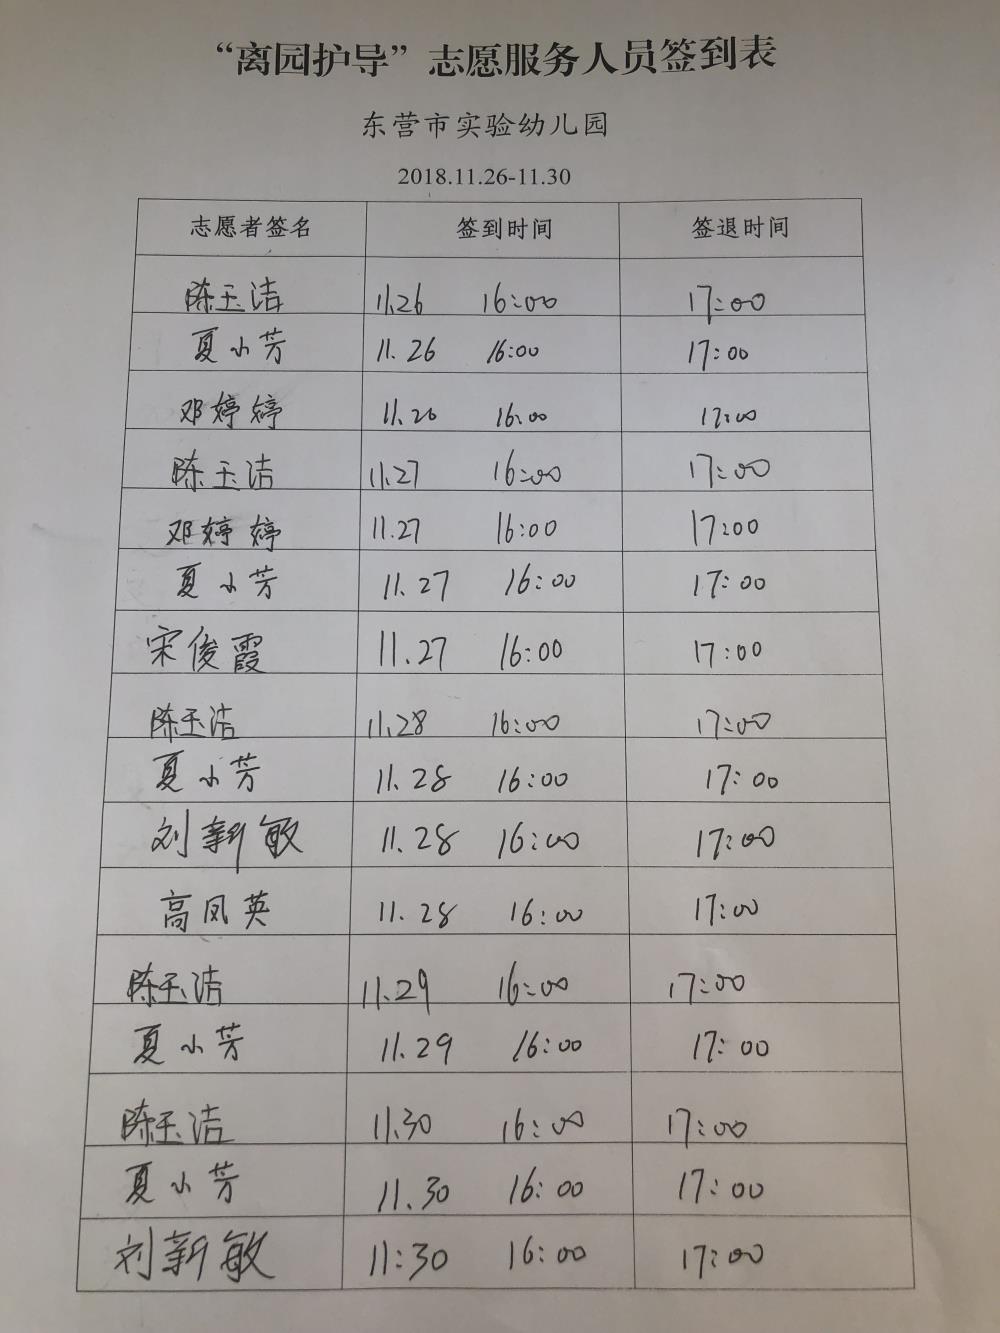 “离园护导”志愿服务人员签到表
东营市实验幼儿园
2018.11.26-11.30
志愿者签名 签到时间 签退时间
陈玉洁 11.26 16:00 17:00
夏小芳 11.26 16:00 17:00
邓婷婷 11.26 16:00 17:00
陈玉洁 11.27 16:00 17:00
邓婷婷 11.27 16:00 17:00
夏小芳 11.27 16:00 17:00
宋俊霞 11.27 16:00 17:00
陈玉洁 11.28 16:00 17:00
夏小芳 11.28 16:00 17:00
刘新敏 11.28 16:00 17:00
高凤英 11.28 16:00 17:00
陈玉洁 11.29 16:00 17:00
夏小芳 11.29 16:00 17:00
陈玉洁 11.30 16:00 17:00
夏小芳 11.30 16:00 17:00
刘新敏 11:30 16:00 17:00